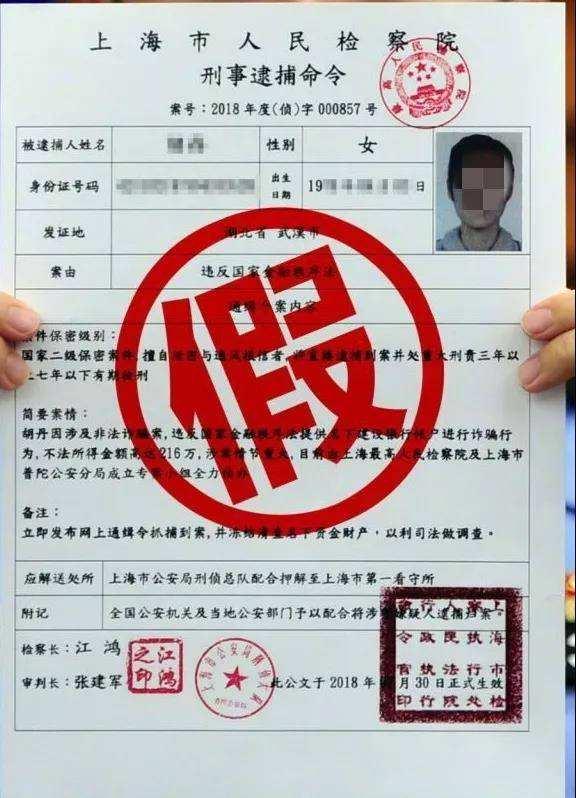 上海市人民检察院
刑事逮捕命令
案号：2018年度(侦)字000857号
被逮捕人姓名 性别 女
身份证号码 出生日期 19 日
发证地 湖北省 武汉市
案由 违反国家金融秩序法
通缉个案内容
案件保密级别：
国家二级保密案件,擅自泄密与通风报信者,将直接逮捕到案并处重大刑责三年以
上七年以下有期徒刑
简要案情：
胡丹因涉及非法诈骗案,违反国家金融秩序法提供名下建设银行帐户进行诈骗行
为,不法所得金额高达216万,涉案情节重大,目前由上海最高人民检察院及上海市
普陀公安分局成立专案小组全力侦办
备注：
立即发布网上通缉令抓捕到案,并冻结清查名下资金财产，以利司法做调查。
应解送处所 上海市公安局刑侦总队配合押解至上海市第一看守所
附记 全国公安机关及当地公安部门予以配合将涉案嫌疑人逮捕归案。
检察长：江 鸿
江鸿之印
审判长：张建军
此公文于2018年 月30日正式生效
假